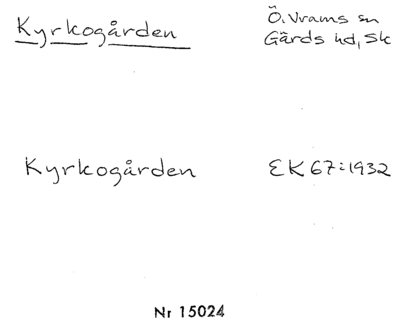 Kyrkogården
Ö. Vrams sn
Gärds hd, Sk
Kyrkogården
EK 67:1932
Nr 15024